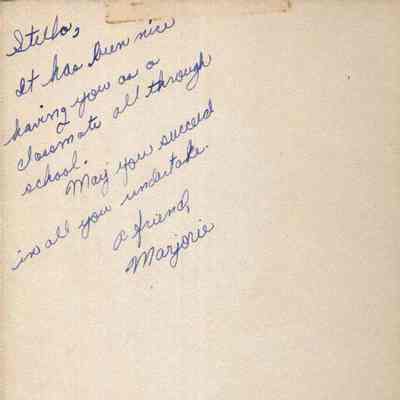 Stella,
It has been nice
having you as a
classmate all through
school.
May you succeed
in all you undertake.
A friend,
Marjorie